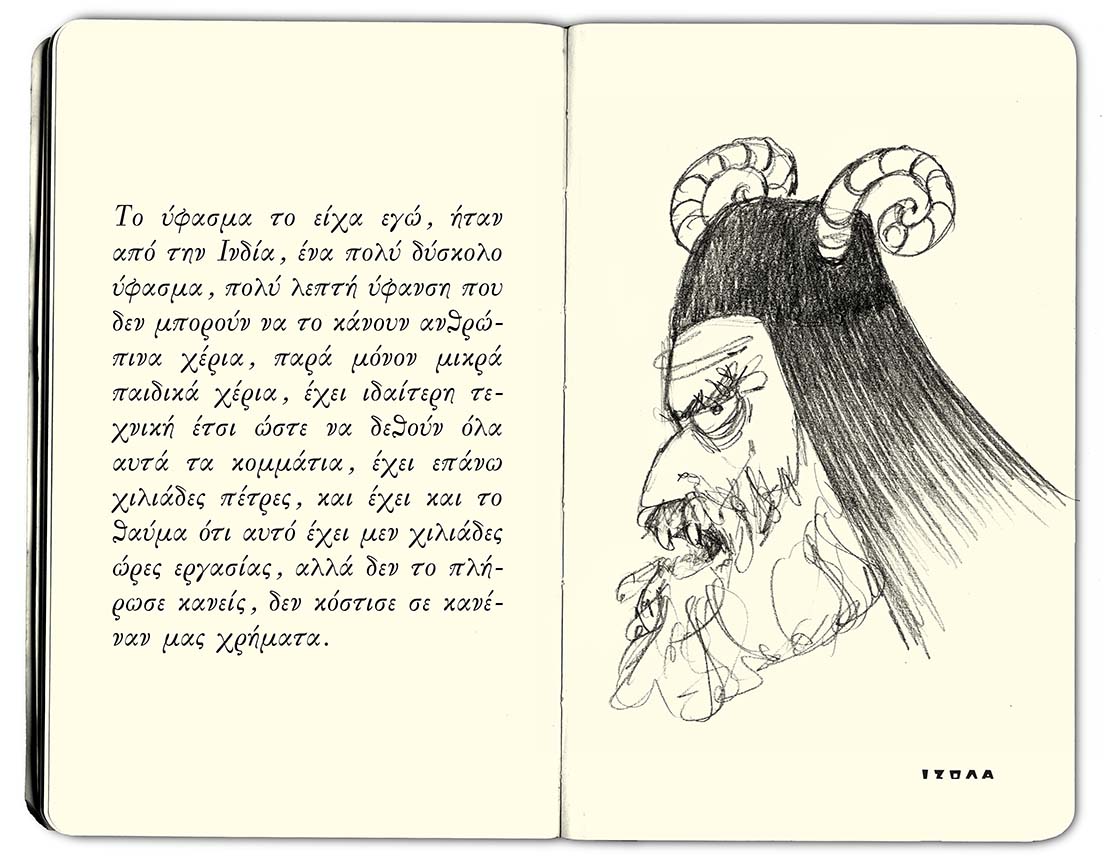 Το ύφασμα το είχα εγώ, ήταν
από την Ινδία, ένα πολύ δύσκολο
ύφασμα, πολύ λεπτή ύφανση που
δεν μπορούν να το κάνουν ανθρώ-
πινα χέρια, παρά μόνον μικρά
παιδικά χέρια, έχει ιδαίτερη τε-
χνική έτσι ώστε να δεθούν όλα
αυτά τα κομμάτια, έχει επάνω
χιλιάδες πέτρες, και έχει και το
θαύμα ότι αυτό έχει μεν χιλιάδες
ώρες εργασίας, αλλά δεν το πλή-
ρωσε κανείς, δεν κόστισε σε κανέ-
ναν μας χρήματα.
ΙΖΟΛΑ